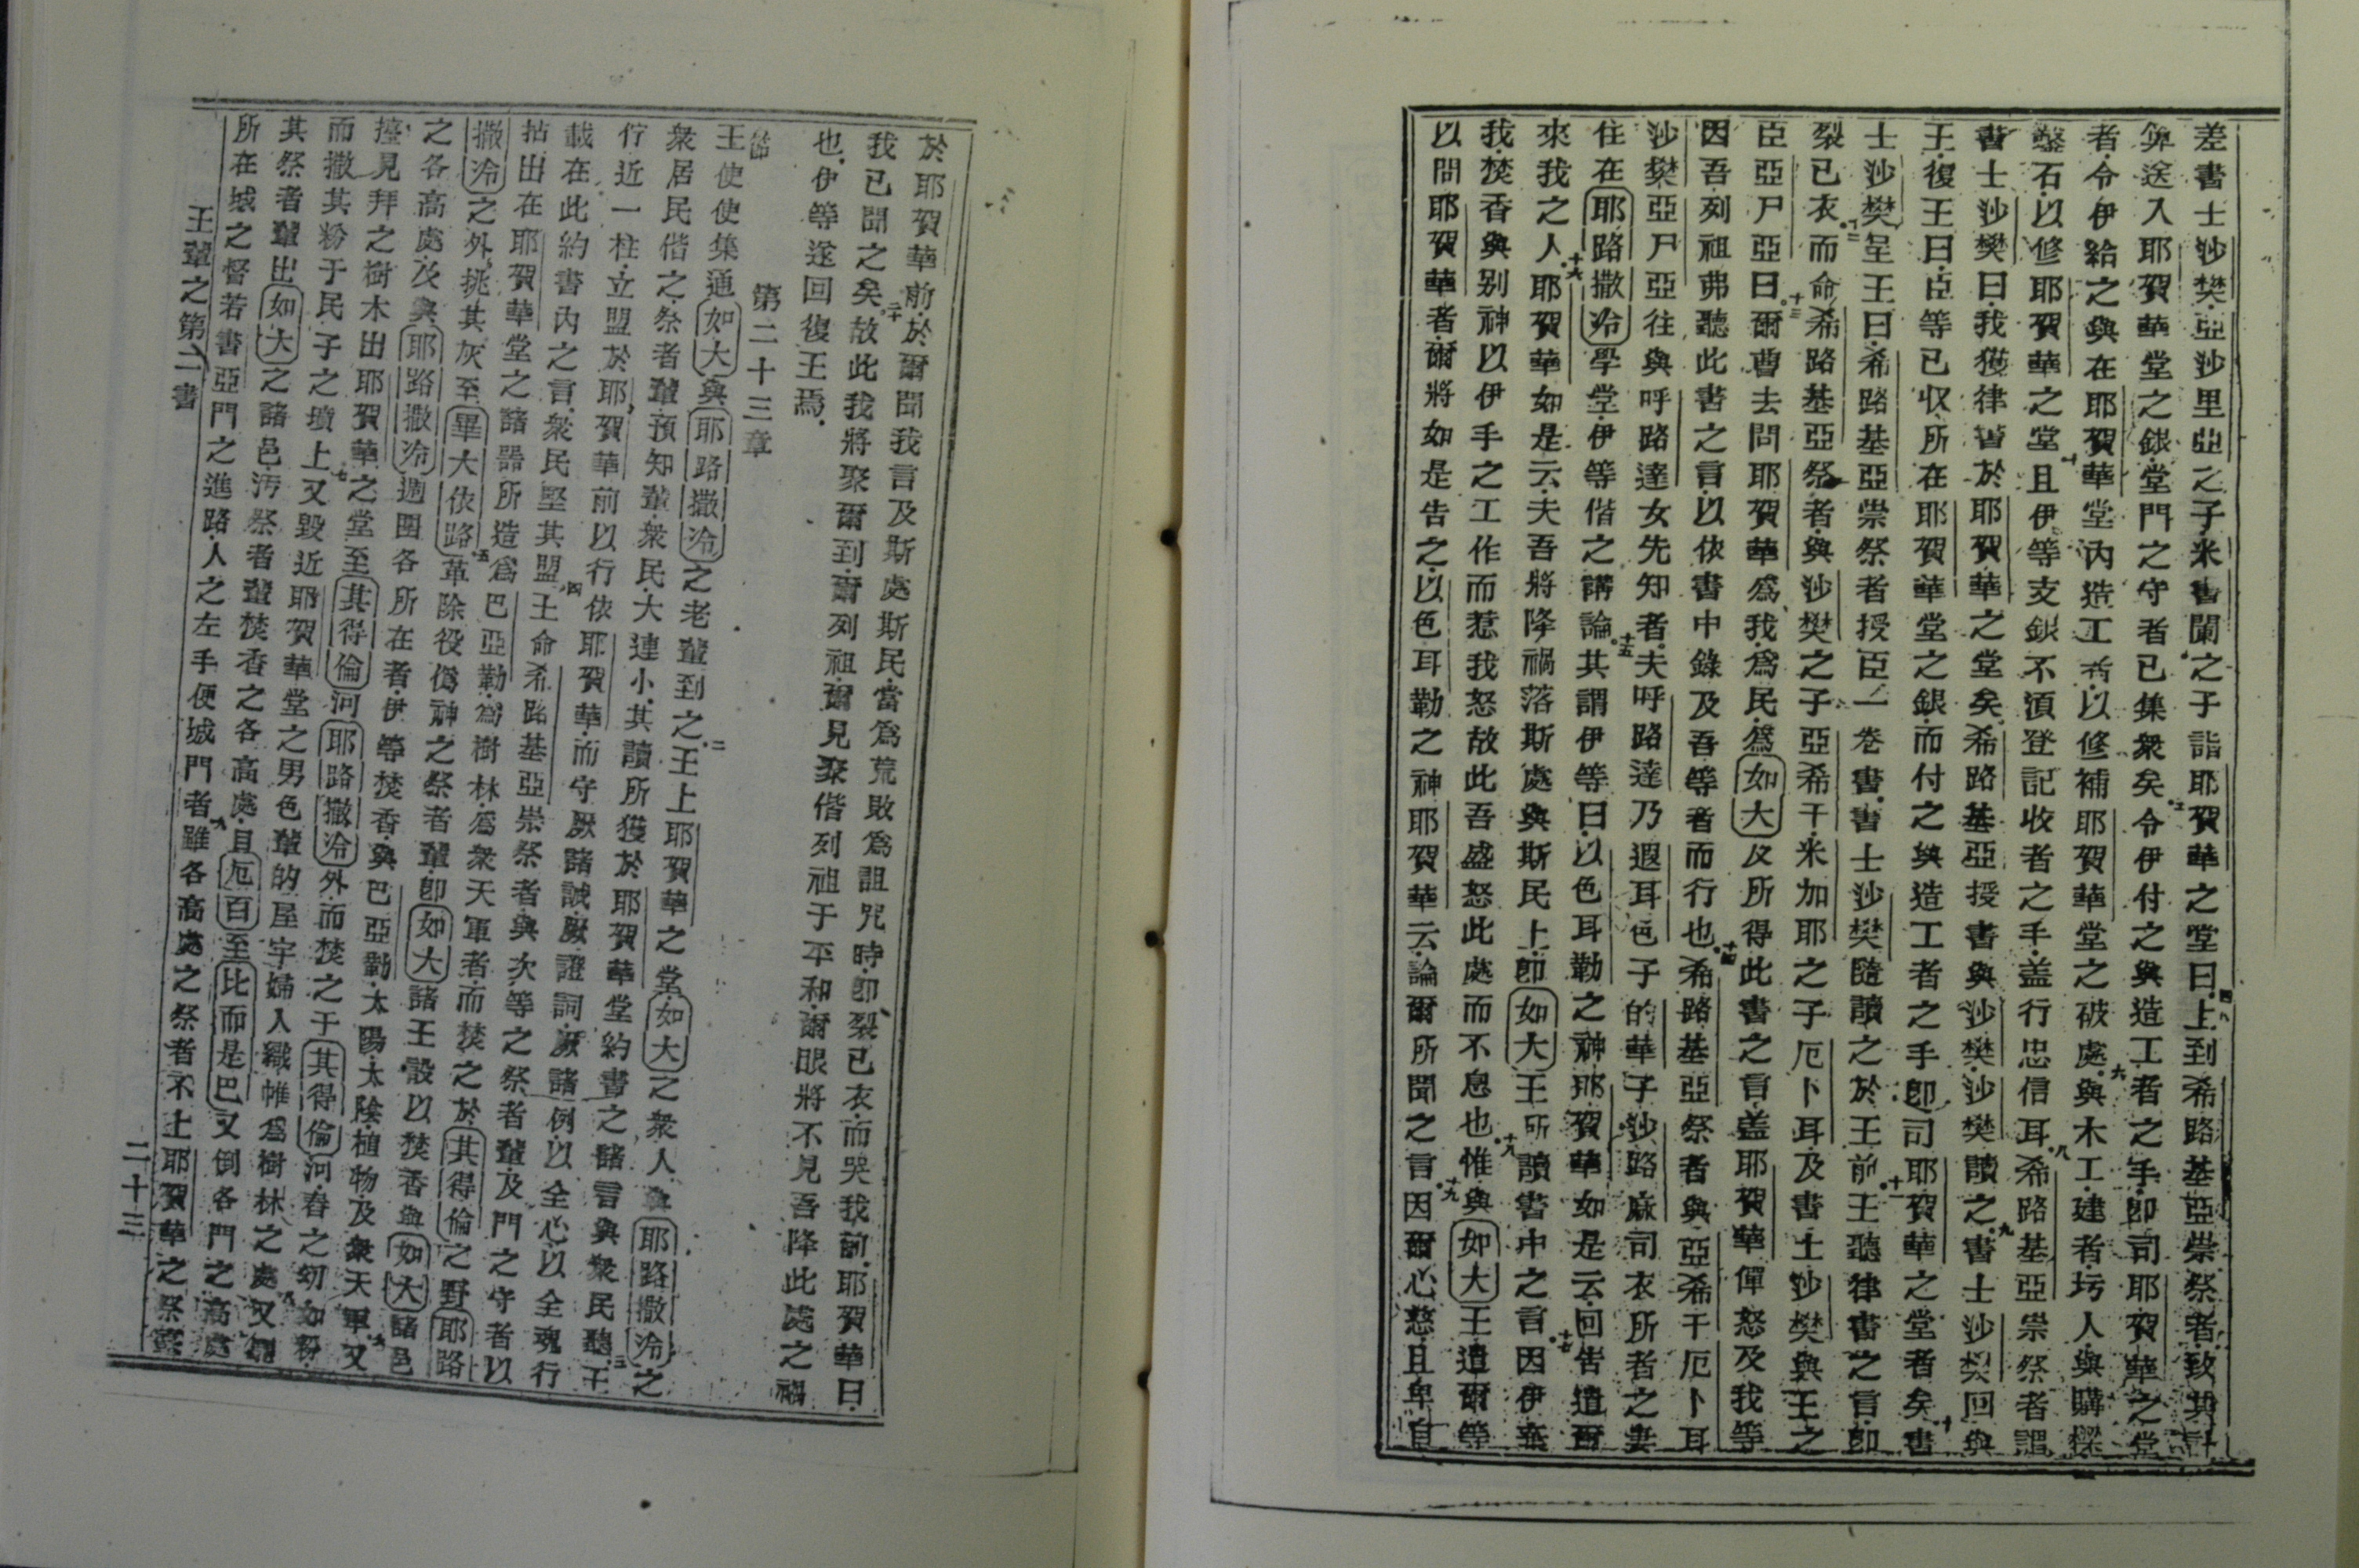 差書士沙樊亞沙里亞之子米書闌之子詣耶賀華之堂曰四上到希路基亞崇祭者致其計
算送入耶賀華堂之銀堂門之守者已集衆矣五令伊付之與造工者之手即司耶賀華之堂
者令伊給之與在耶賀華堂內造工者以修補耶賀華堂之破處六與木工建者圬人與購採
鑿石以修耶賀華之堂七且伊等支銀不須登記收者之手盖行忠信耳八希路基亞崇祭者謂
書士沙樊曰我獲律書於耶賀華之堂矣希路基亞授書與沙樊沙樊讀之九書士沙樊回與
王復王曰臣等已收所在耶賀華堂之銀而付之與造工者之手即司耶賀華之堂者矣十書
士沙樊呈王曰希路基亞崇祭者授臣一卷書書士沙樊隨讀之於王前十一王聽律書之言即
裂已衣十二而命希路基亞祭者與沙樊之子亞希干米加耶之子厄卜耳及書士沙樊與王之
臣亞尸亞曰十三爾曹去問耶賀華爲我爲民爲如大及所得此書之言盖耶賀華僤怒及我等
因吾列祖弗聽此書之言以依書中錄及吾等者而行也十四希路基亞祭者與亞希干厄卜耳
沙樊亞尸亞往與呼路達女先知者夫呼路達乃遐耳色子的華子沙路麻司衣所者之妻
住在耶路撒冷學堂伊等偕之講論十五其謂伊等曰以色耳勒之神耶賀華如是云回告遣爾
來我之人十六耶賀華如是云夫吾將降禍落斯處與斯民上即如大王所讀書中之言十七因伊棄
我焚香與别神以伊手之工作而惹我怒故此吾盛怒此處而不息也十八惟與如大王遣爾等
以問耶賀華者爾將如是告之以色耳勒之神耶賀華云論爾所聞之言十九因爾心慈且卑自
於耶賀華前於爾聞我言及斯處斯民當爲荒敗爲詛咒時即裂已衣而哭我前耶賀華曰
我已聞之矣二十故此我將聚爾到爾列祖爾見聚偕列祖于平和爾眼將不見吾降此處之禍
也伊等遂回復王焉
第二十三章
節
王使使集通如大與耶路撒冷之老輩到之二王上耶賀華之堂如大之衆人與耶路撒冷之
衆居民偕之祭者輩預知輩衆民大連小其讀所獲於耶賀華堂約書之諸言與衆民聽三王
佇近一柱立盟於耶賀華前以行依耶賀華而守厥諸誡厥證詞厥諸例以全心以全魂行
載在此約書內之言衆民堅其盟四王命希路基亞崇祭者與次等之祭者輩及門之守者以
拈出在耶賀華堂之諸噐所造爲巴亞勒爲樹林爲衆天軍者而焚之於其得倫之野耶路
撒冷之外挑其灰至畢大依路五革除役僞神之祭者輩即如大諸王設以焚香與如大諸邑
之各高處及與耶路撒冷週圍各所在者伊等焚香與巴亞勒太陽太陰植物及衆天軍六又
擡見拜之樹木出耶賀華之堂至其得倫河耶路撒冷外而焚之于其得倫河舂之幼如粉
而撒其粉于民子之墳上七又毀近耶賀華堂之男色輩的屋宇婦人織帷爲樹林之處八又
其祭者輩出如大之諸邑汚祭者輩焚香之各高處且厄百至比而是巴又倒各門之高處
所在城之督若書亞門之進路人之左手便城門者九雖各高處之祭者不上耶賀華之祭臺
王輩之第二書
二十三